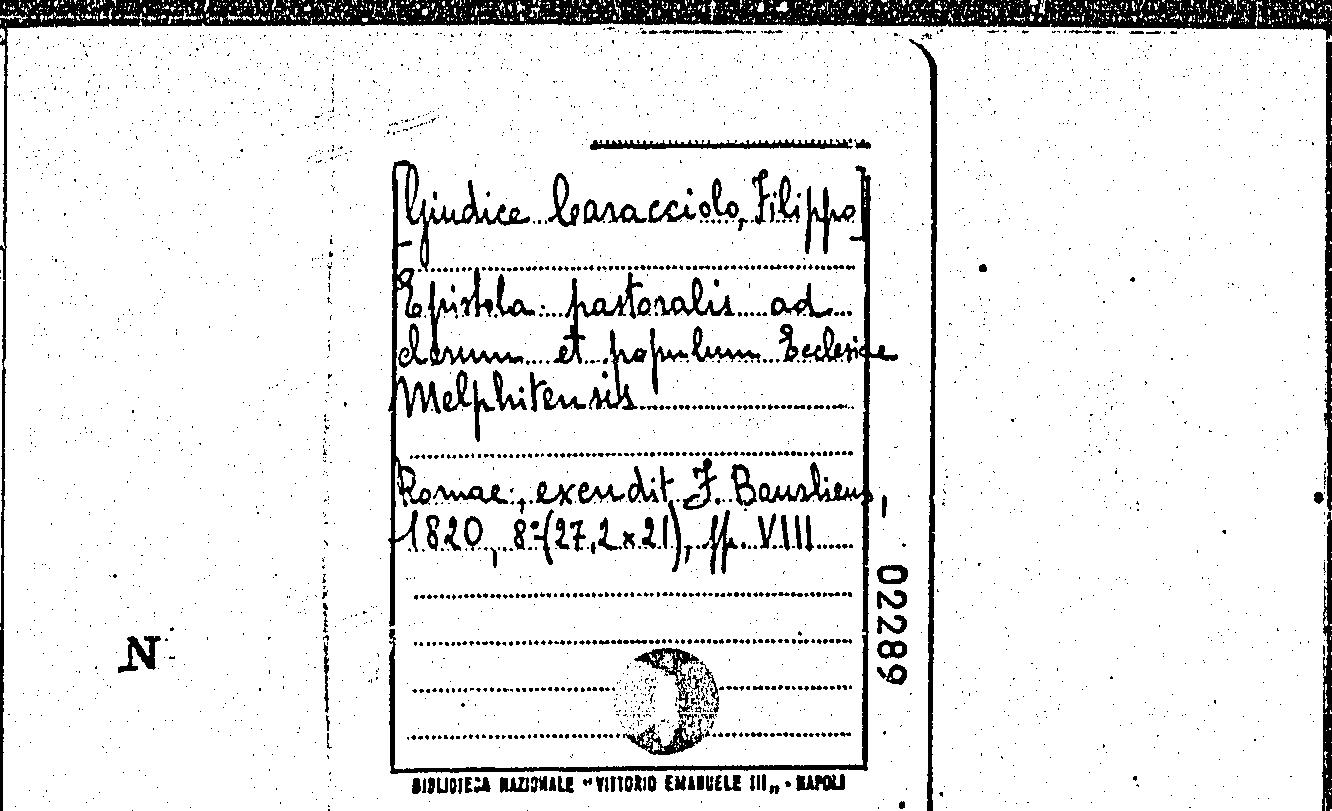 [Giudice Caracciolo, Filippo]
Epistola pastoralis ad
clerum et populum Ecclesiae
Melphitensis
Romae, excudit F. Bourliens,
1820, 8°(27,2x21), pp. VIII
02289
N
BIBLIOTECA NAZIONALE "VITTORIO EMANUELE III„ - NAPOLI